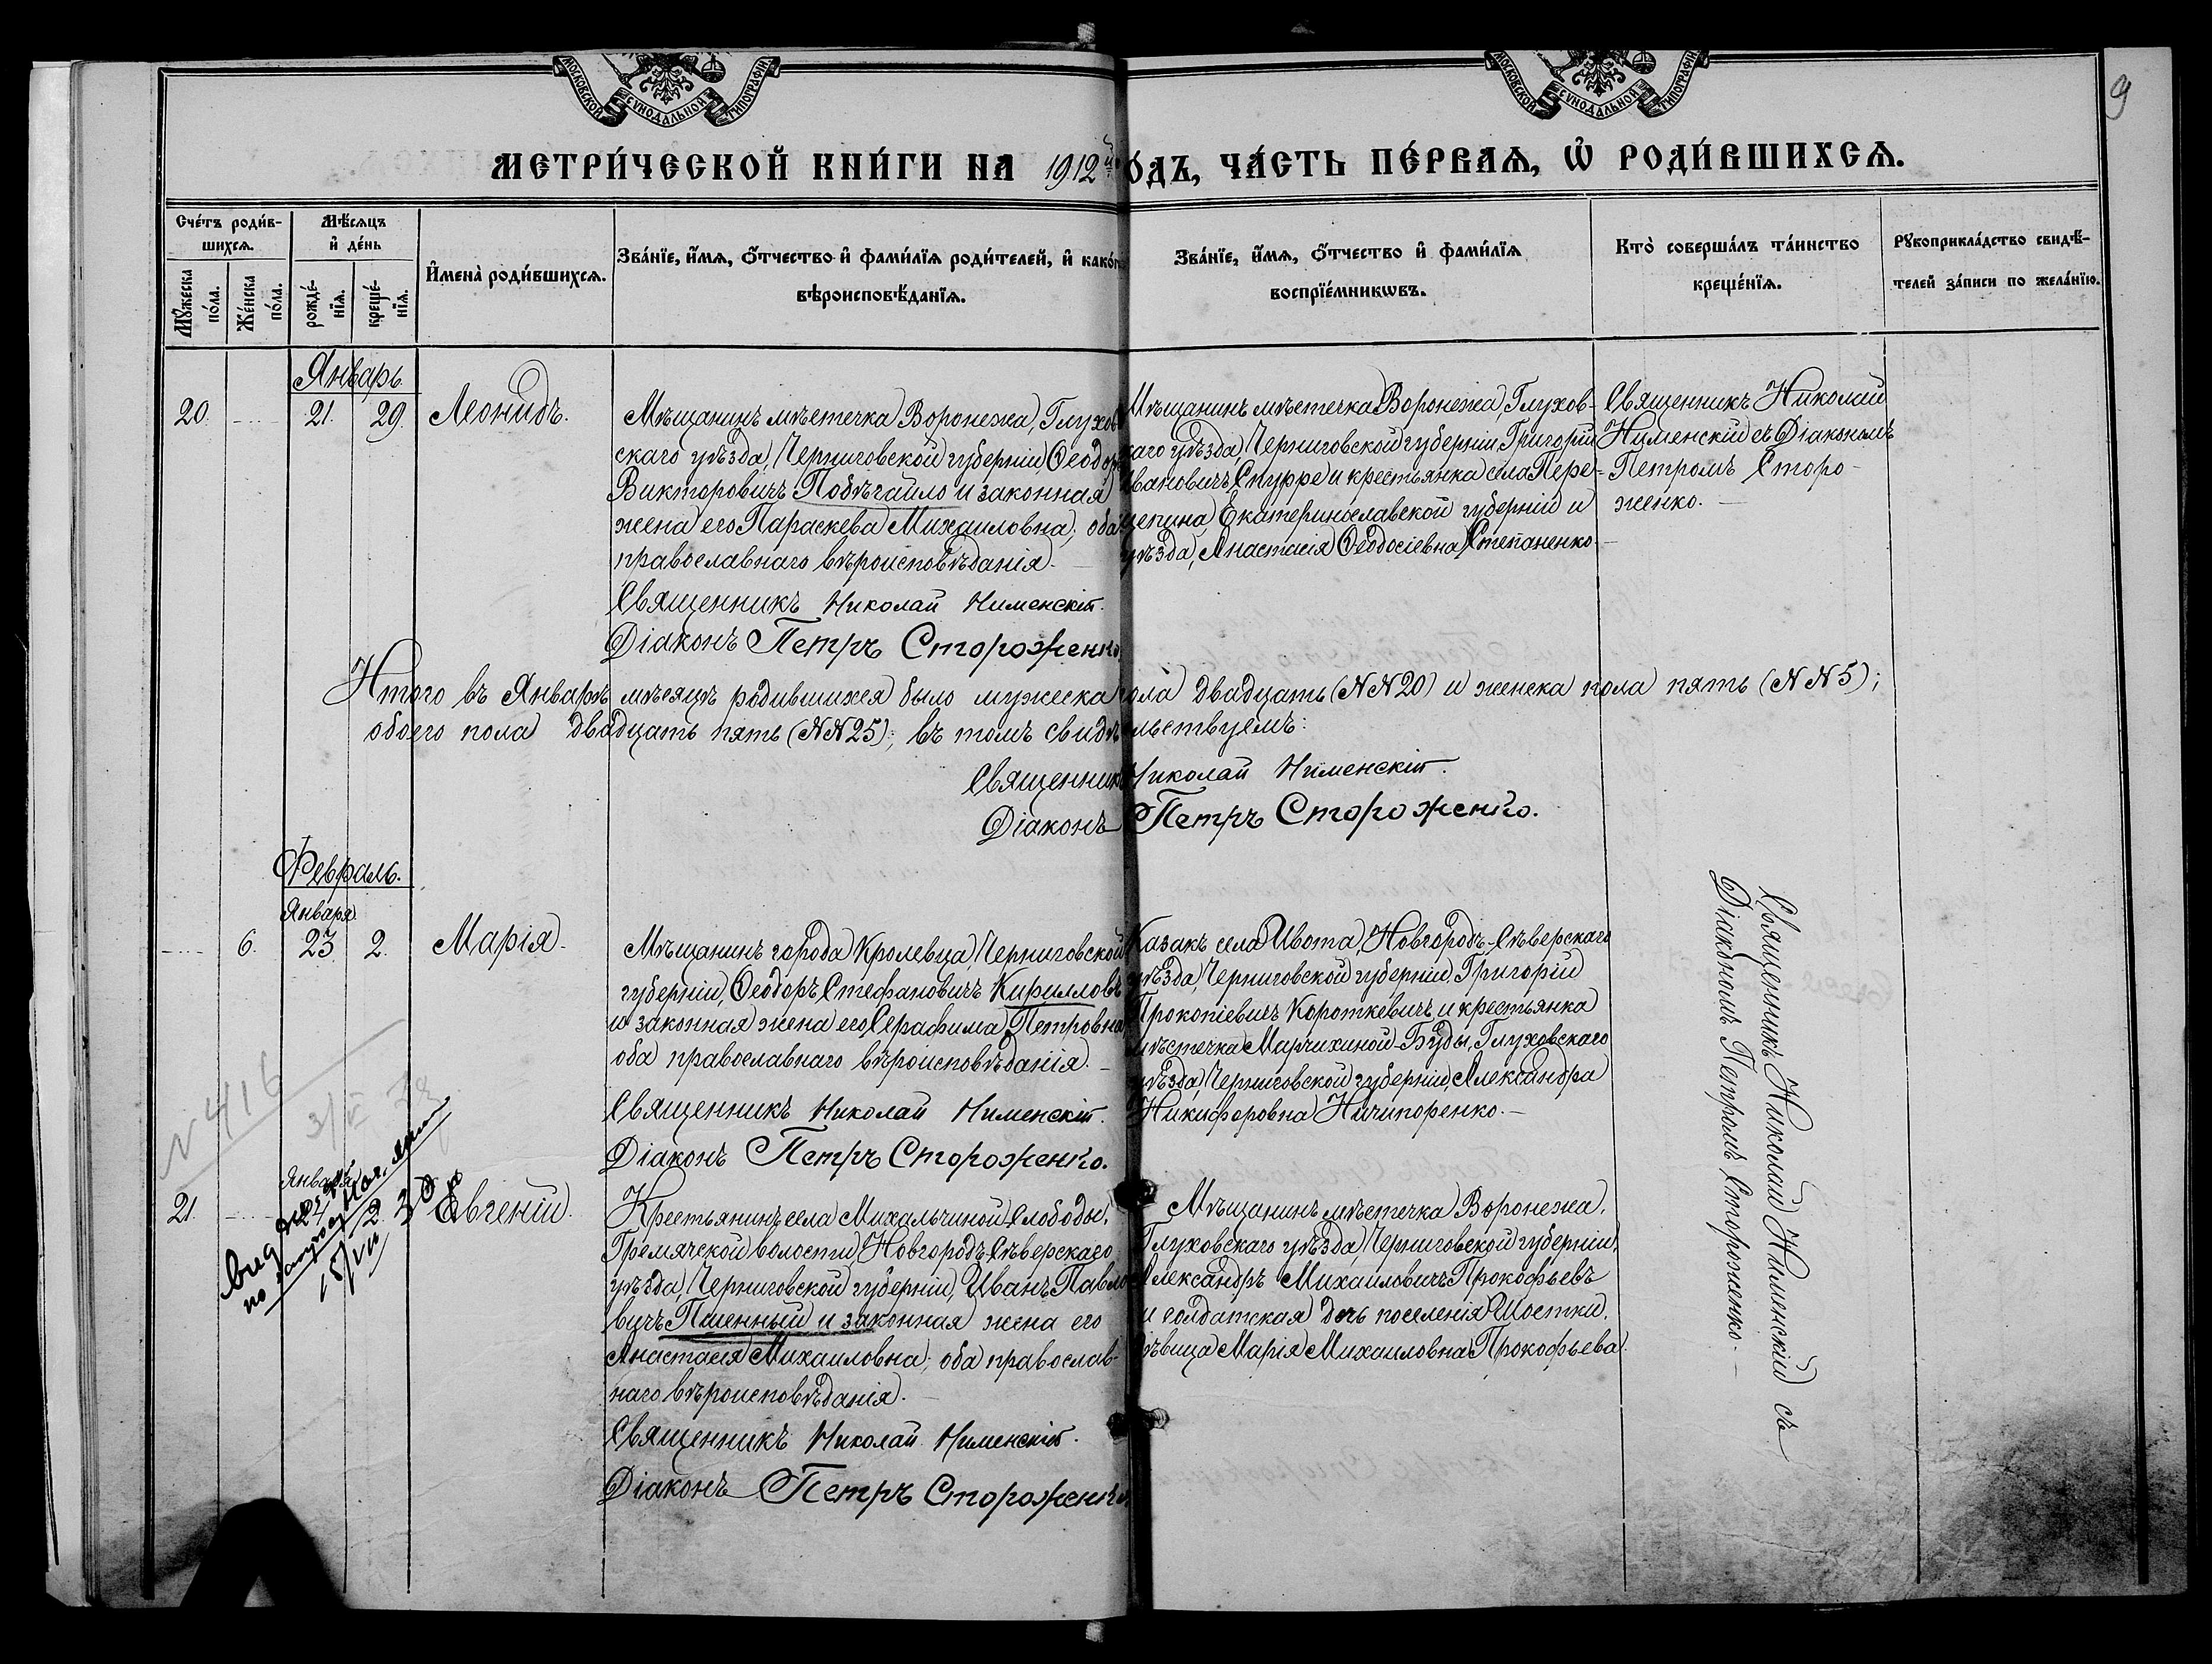 МОСКОВСКОЙ СУНОДАЛЬНОЙ ТИПОГРАФІИ
МОСКОВСКОЙ СУНОДАЛЬНОЙ ТИПОГРАФІИ
9
МЕТРИ́ЧЕСКОЙ КНИ́ГИ НА 1912й
О́ДЪ, ЧА́СТЬ ПЕ́РВАѦ, Ѡ҆ РОДИ́ВШИХСѦ.
Сче́тъ роди́в-
шихсѧ.
Мꙋ́жеска по́ла.
Же́нска по́ла.
Мѣ́сѧцъ
и҆ де́нь
рожде́-
нїѧ.
креще́-
нїѧ.
И҆мена̀ роди́вшихсѧ.
Зва́нїе, и҆́мѧ, ѻ҆́тчество и҆ фами́лїѧ роди́телей, и҆ како́г
вѣроисповѣ́данїѧ.
Зва́нїе, и҆́мѧ, ѻ҆́тчество и҆ фами́лїѧ
воспрїе́мникѡвъ.
Кто̀ соверша́лъ та́инство
креще́нїѧ.
Рꙋкоприкла́дство свидѣ́-
телей за́писи по жела́нїю.
Январь.
20.
21.
29.
Леонидъ.
Мѣщанинъ мѣстечка Воронежа, Глухов
скаго уѣзда, Черниговской губерніи Ѳеодор
Викторовичъ Побѣгайло и законная
жена его Параскева Михаиловна; оба
православнаго вѣроисповѣданія.
Священникъ Николай Нименскій.
Діаконъ Петръ Стороженко
Мѣщанинъ мѣстечка Воронежа Глухов-
скаго уѣзда, Черниговской губерніи, Григорій
Ивановичъ Скурре и крестьянка села Пере-
щепина, Екатеринославской губерніи и
уѣзда, Анастасія Ѳеодосіевна Степаненко
Священникъ Николай
Нименскій съ Діакономъ
Петромъ Сторо-
женко.
Итого въ Январѣ мѣсяцѣ родившихся было мужеска пола двадцать (NN 20) и женска пола пять (NN 5);
обоего пола двадцать пять (NN 25); въ томъ свидѣтельствуемъ:
Священникъ Николай Нименскій.
Діаконъ Петръ Стороженко.
Февраль.
Января
6.
23.
2.
Марія.
Мѣщанинъ города Кролевца, Черниговской
губерніи, Ѳеодоръ Стефановичъ Кирилловъ
и законная жена его Серафима Петровна
оба православнаго вѣроисповѣданія.
Священникъ Николай Нименскій.
Діаконъ Петръ Стороженко.
Казакъ села Ивота, Новгородъ-Сѣверскаго
уѣзда, Черниговской губерніи, Григорій
Прокопіевичъ Короткевичъ и крестьянка
мѣстечка Марчихиной-Буды, Глуховскаго
уѣзда, Черниговской губерніи, Александра
Никифоровна Ничипоренко.
Священникъ Николай Нименскій съ
Діакономъ Петромъ Стороженко.
N 416
Января
21.
24.
2.
Евгеній.
Крестьянинъ села Михальчиной-Слободы,
Гремячской волости, Новгородъ-Сѣверскаго
уѣзда, Черниговской губерніи, Иванъ Павло
вичъ Пшенный и законная жена его
Анастасія Михаиловна; оба православ-
наго вѣроисповѣданія.
Священникъ Николай Нименскій.
Діаконъ Петръ Стороженко
Мѣщанинъ мѣстечка Воронежа,
Глуховскаго уѣзда, Черниговской губерніи,
Александръ Михаиловичъ Прокофьевъ
и солдатская дочь поселенія Шостки,
дѣвица Марія Михаиловна Прокофьева.